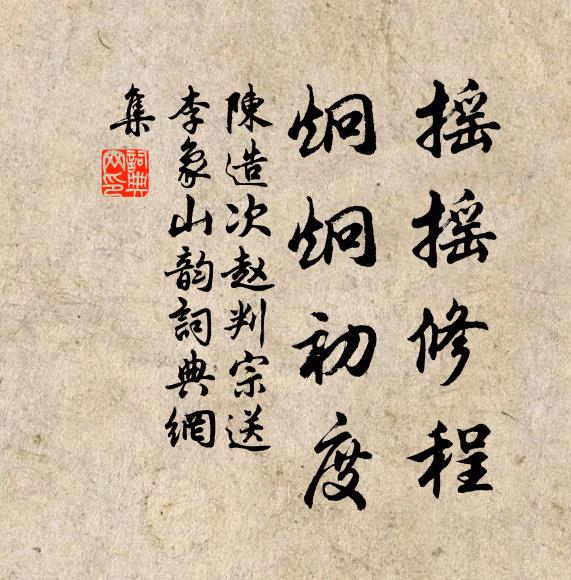 摇摇修程
炯炯初度
陳造次赵判宗送
李象山韵詞典網
集
詞典網印